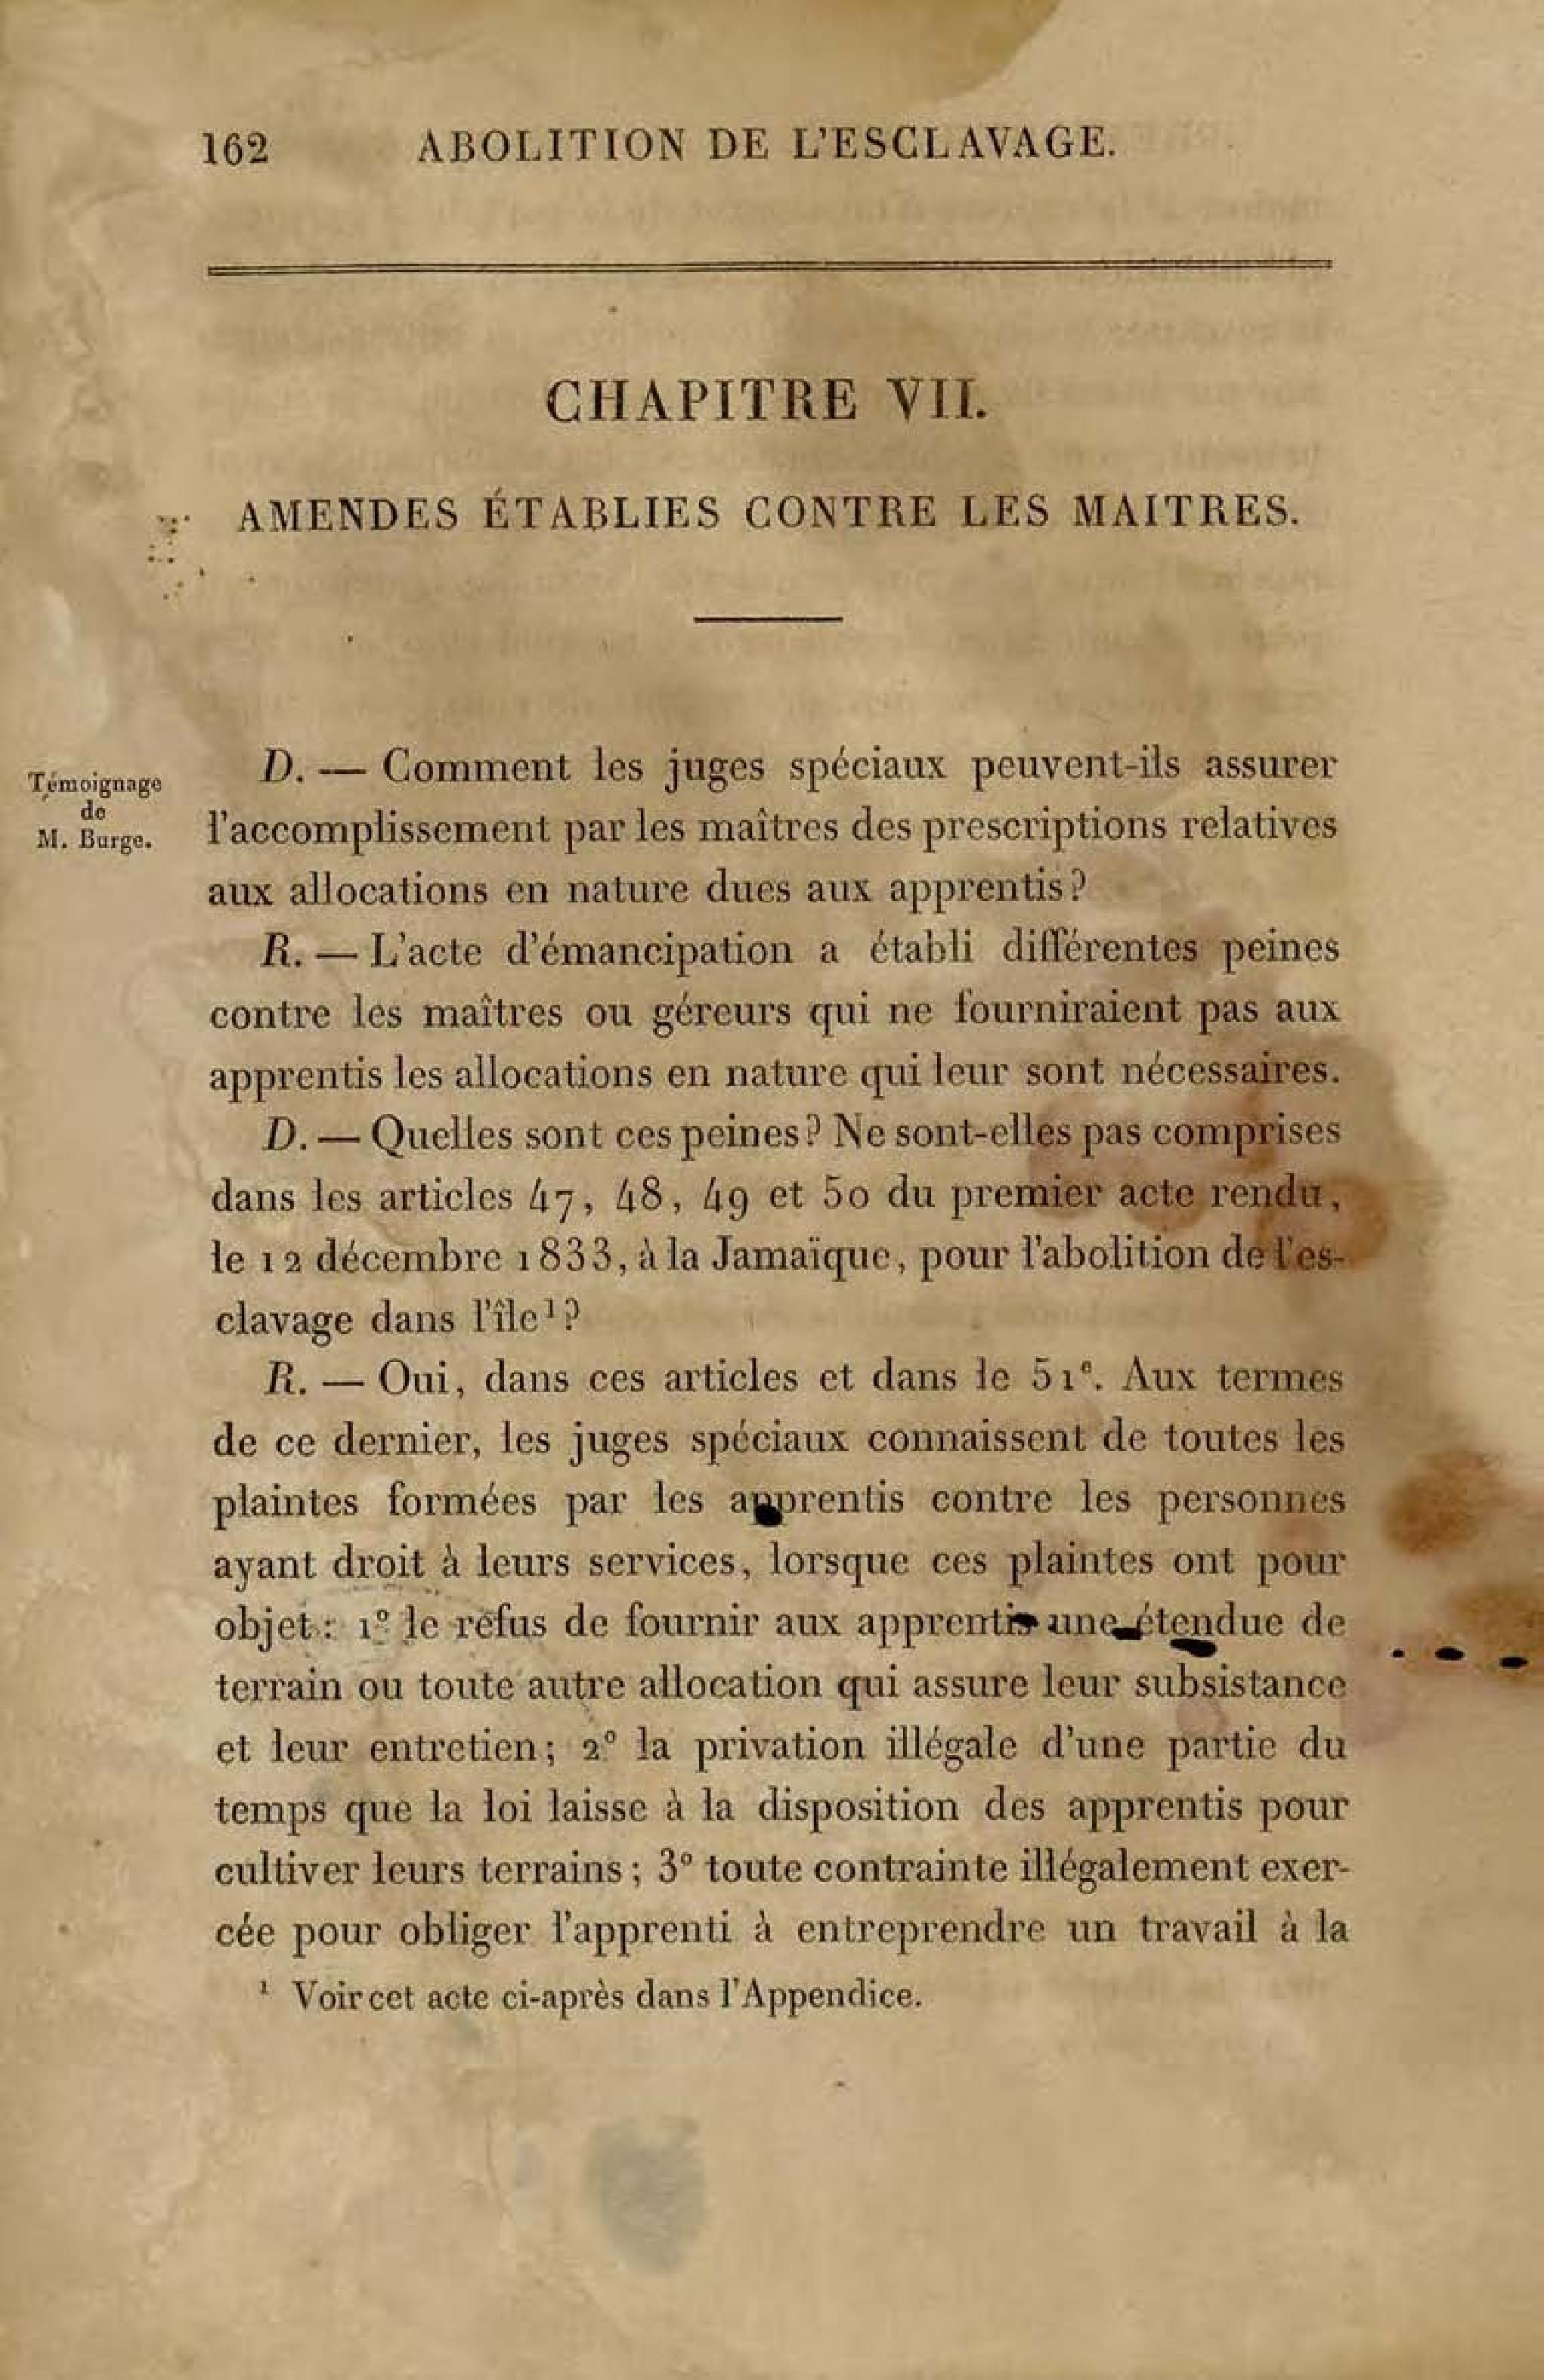 162 ABOLITION DE L'ESCLAVAGE.
CHAPITRE VII.
AMENDES ÉTABLIES CONTRE LES MAITRES.
Témoignage
de
M. Burge.
D. — Comment les juges spéciaux peuvent-ils assurer
l'accomplissement par les maîtres des prescriptions relatives
aux allocations en nature dues aux apprentis?
R. — L'acte d'émancipation a établi différentes peines
contre les maîtres ou géreurs qui ne fourniraient pas aux
apprentis les allocations en nature qui leur sont nécessaires.
D. — Quelles sont ces peines? Ne sont-elles pas comprises
dans les articles 47, 48, 49 et 50 du premier acte rendu,
le 12 décembre 1833, à la Jamaïque, pour l'abolition de l'es-
clavage dans l'île¹?
R. — Oui, dans ces articles et dans le 51ᵉ. Aux termes
de ce dernier, les juges spéciaux connaissent de toutes les
plaintes formées par les apprentis contre les personnes
ayant droit à leurs services, lorsque ces plaintes ont pour
objet : 1º le refus de fournir aux apprentis une étendue de
terrain ou toute autre allocation qui assure leur subsistance
et leur entretien; 2º la privation illégale d'une partie du
temps que la loi laisse à la disposition des apprentis pour
cultiver leurs terrains; 3º toute contrainte illégalement exer-
cée pour obliger l'apprenti à entreprendre un travail à la
¹ Voir cet acte ci-après dans l'Appendice.